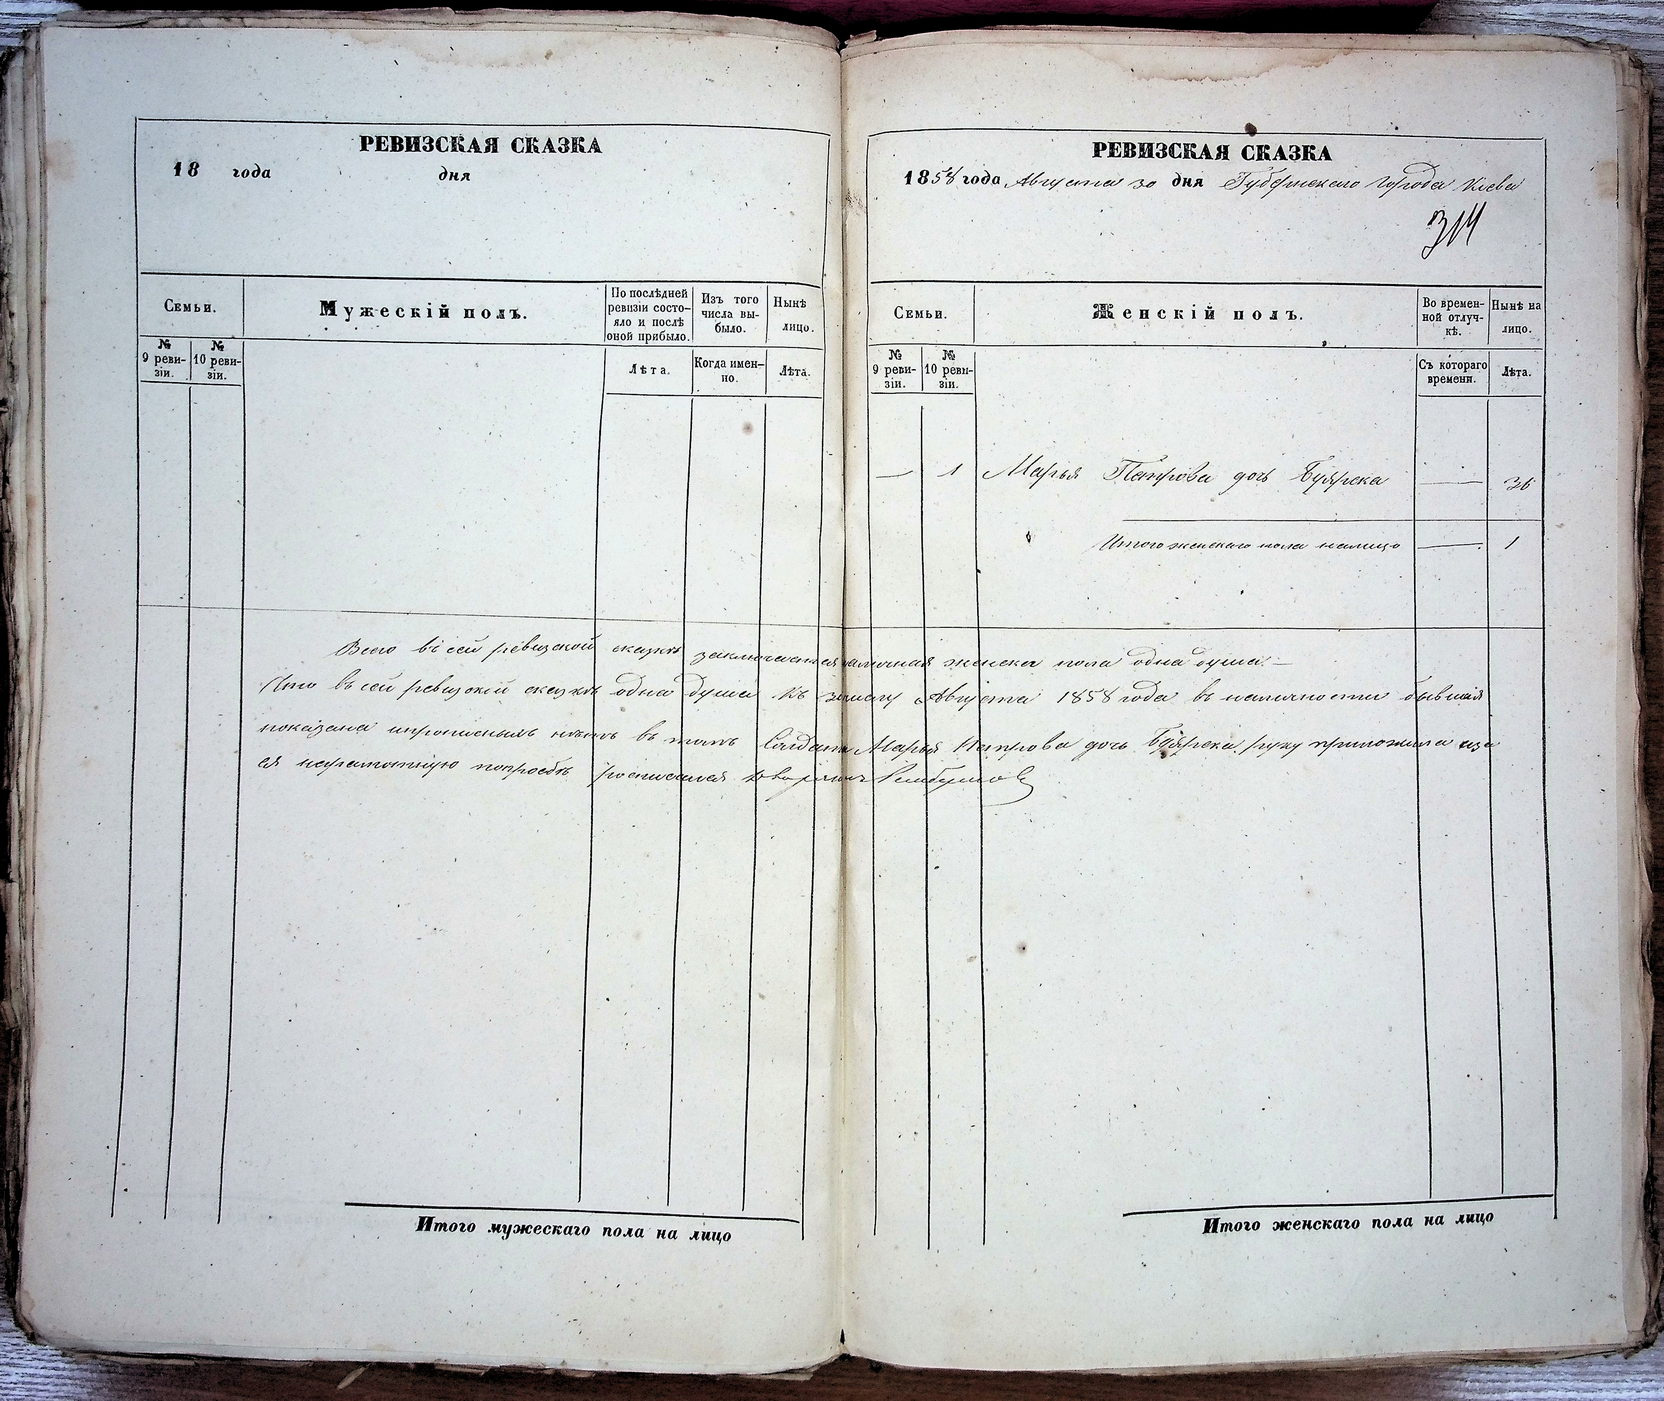 РЕВИЗСКАЯ СКАЗКА
18 года дня
Семьи.
Мужескій полъ.
По послѣдней ревизіи состо-
яло и послѣ
оной прибыло.
Изъ того
числа вы-
было.
Нынѣ
лицо.
№
9 реви-
зіи.
№
10 реви-
зіи.
Лѣта.
Когда имен-
но.
Лѣта.
РЕВИЗСКАЯ СКАЗКА
1858 года Августа 30 дня Губернскаго города Кіева
314
Семьи.
Женскій полъ.
Во времен-
ной отлуч-
кѣ.
Нынѣ на
лицо.
№
9 реви-
зіи.
№
10 реви-
зіи.
Съ котораго
времени.
Лѣта.
— 1 Марья Петрова дочь — 36
Итого женскаго пола налицо — 1
Всего въ сей ревизской сказкѣ заключается наличная женска пола одна душа. —
Что въ сей ревизской сказкѣ одна душа къ Августа 1858 года въ наличности бывшая
показана и прописныхъ нѣтъ въ томъ Марья Петрова дочь руку приложила а за
ея неграмотную по просьбѣ росписался
Итого мужескаго пола на лицо
Итого женскаго пола на лицо